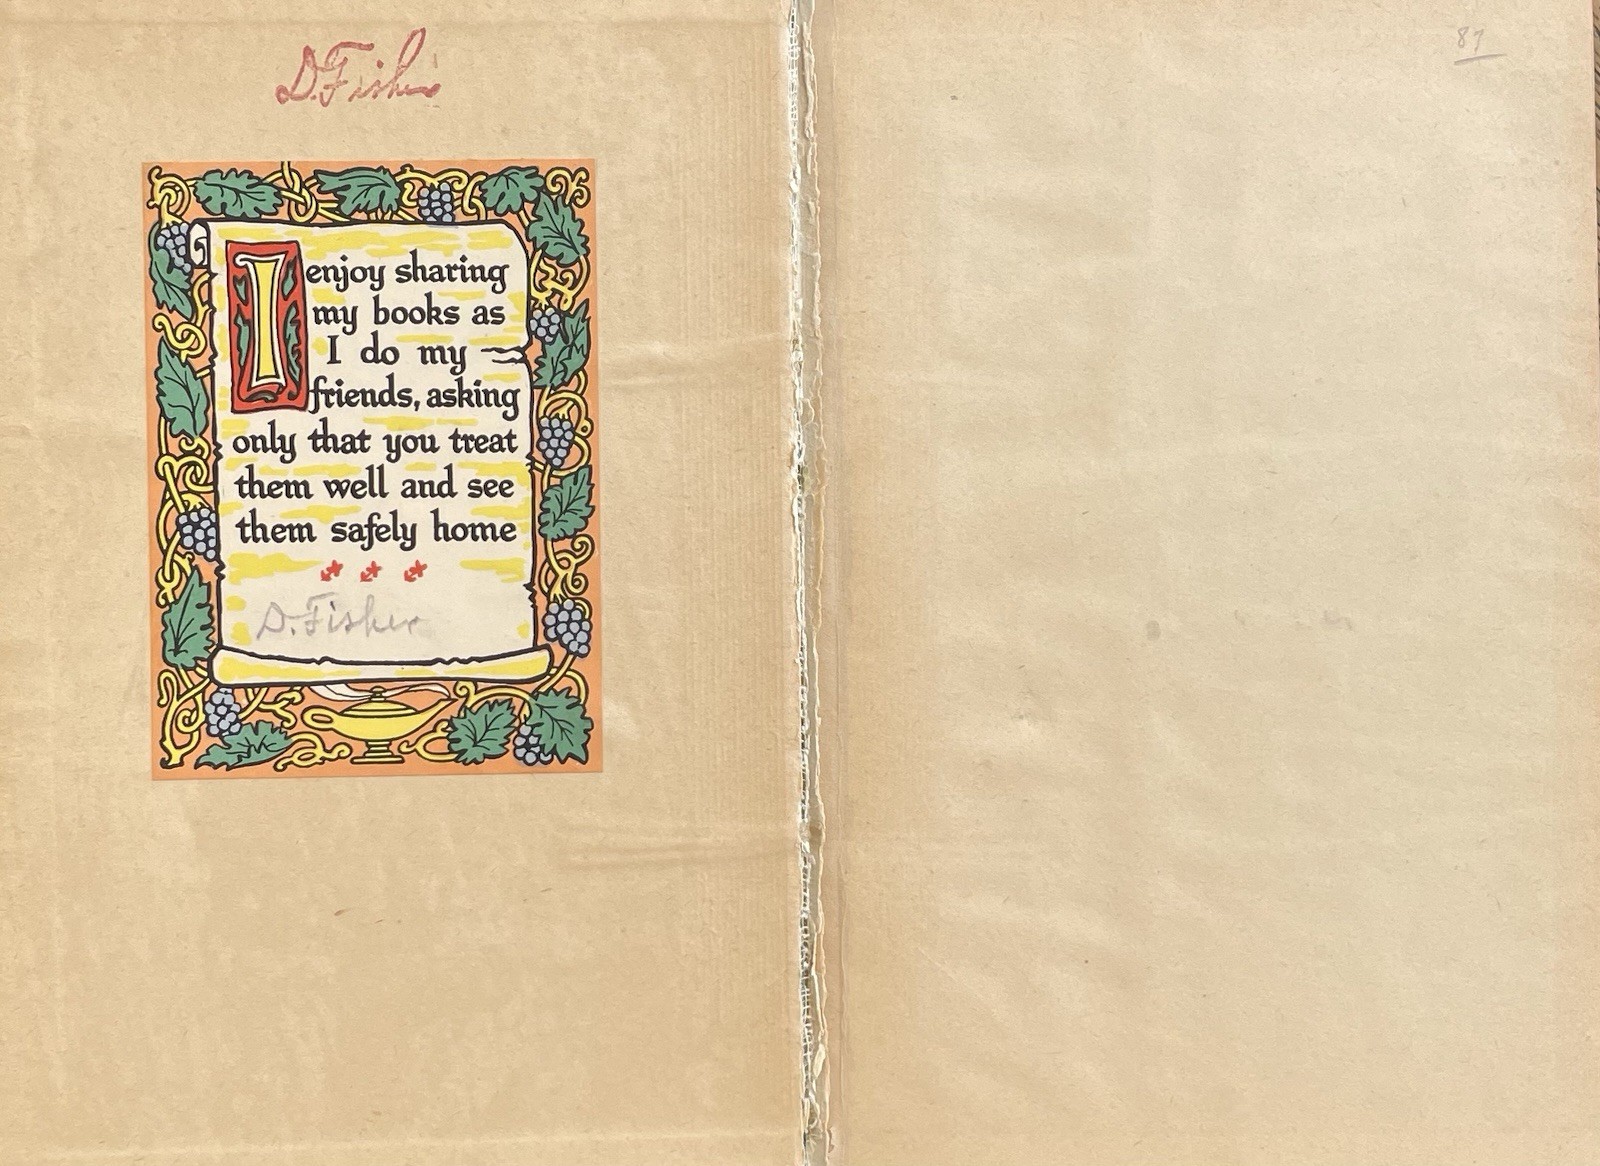 D. Fisher
87
I enjoy sharing
my books as
I do my
friends, asking
only that you treat
them well and see
them safely home
D. Fisher